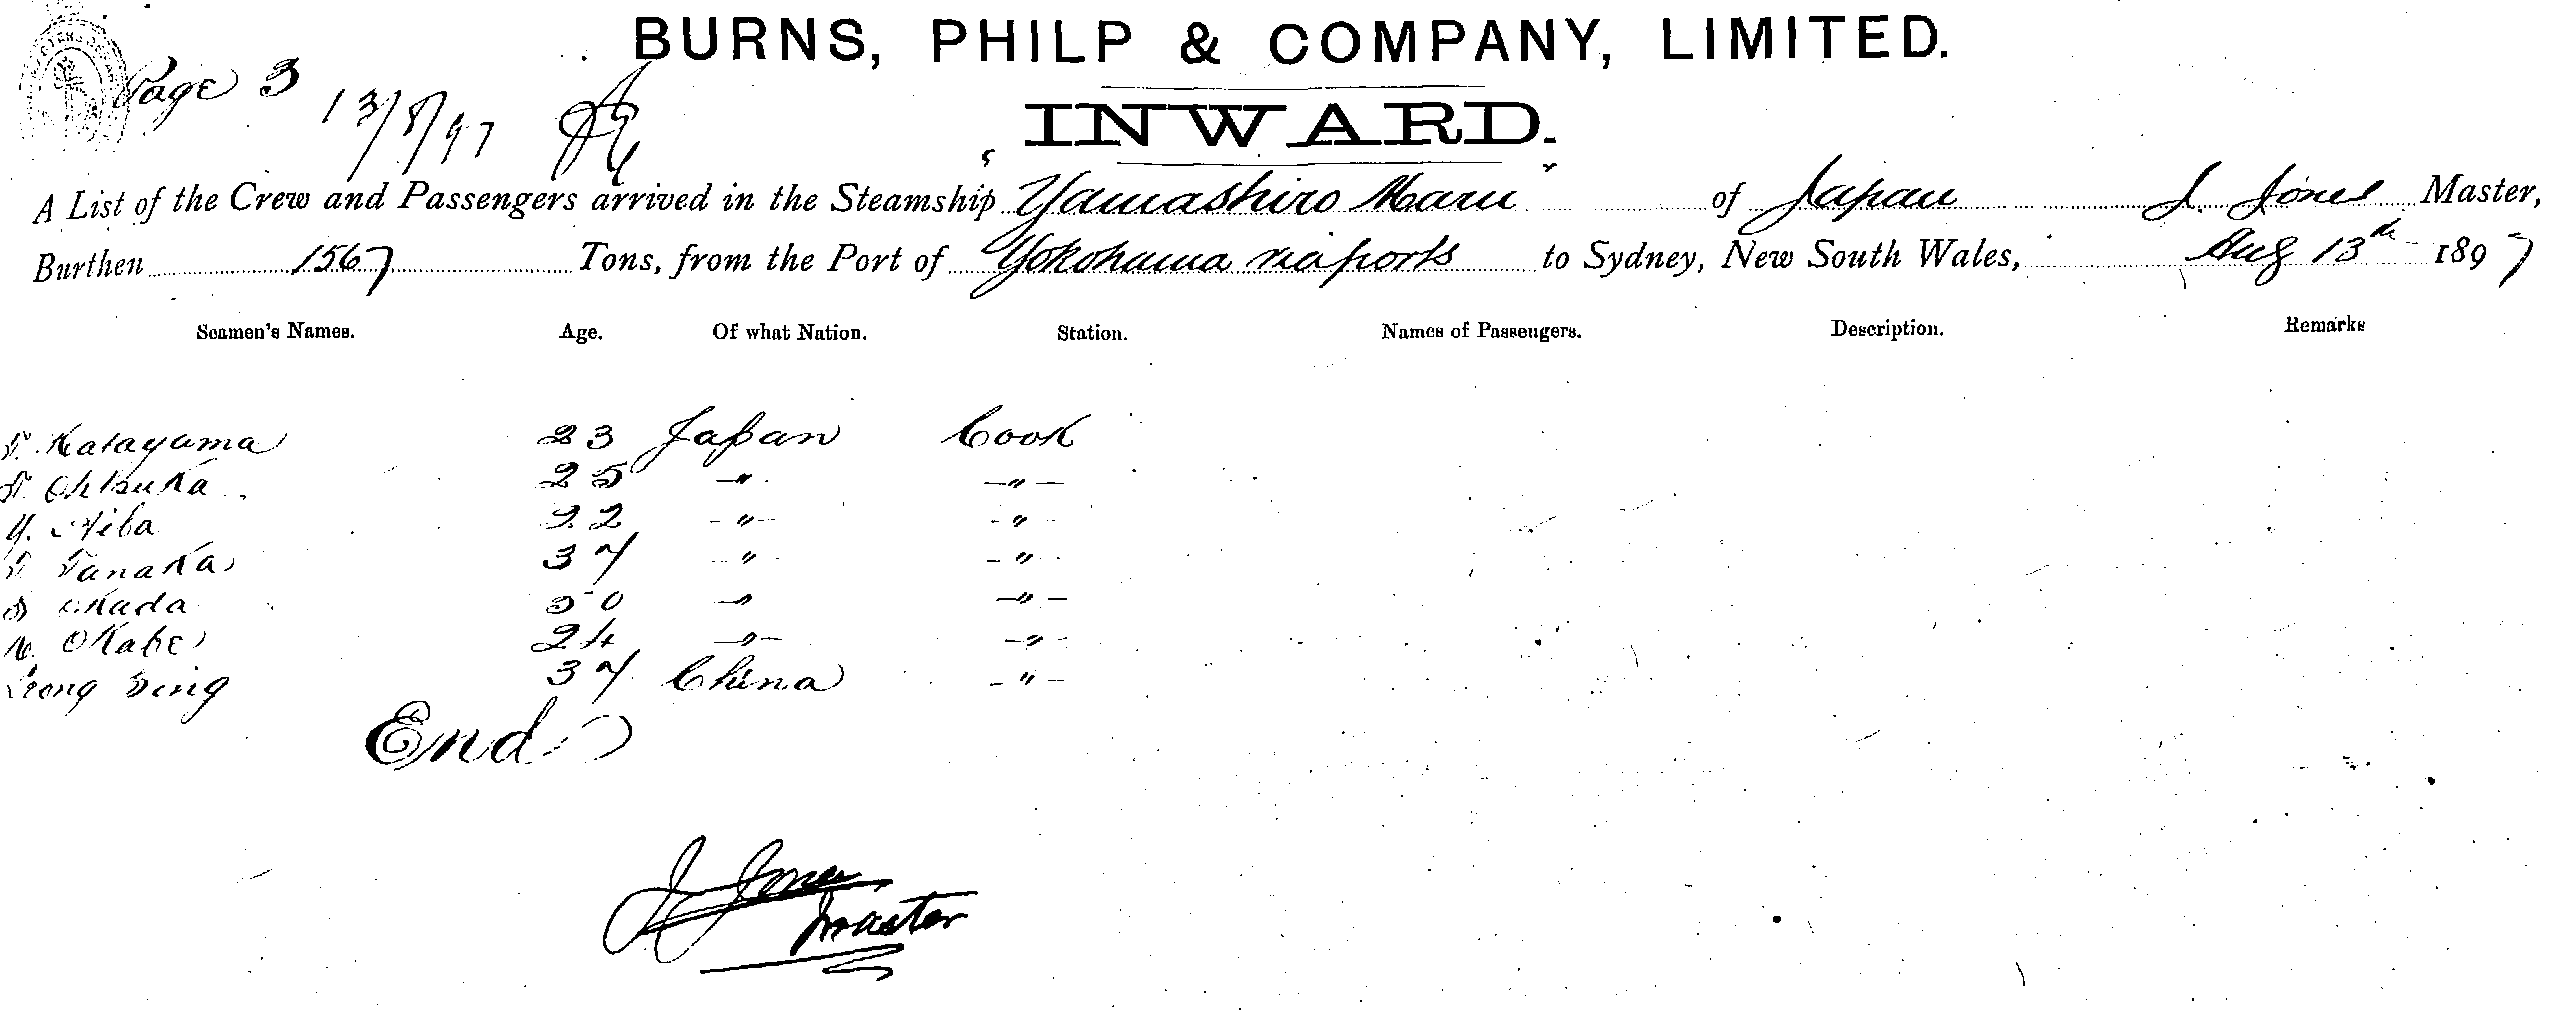 BURNS, PHILP & COMPANY, LIMITED.
Page 3 13/8/97
INWARD.
A List of the Crew and Passengers arrived in the Steamship "Yamashiro Maru" of Japan J. Jones Master,
Burthen 1567 Tons, from the Port of Yokohama via ports to Sydney, New South Wales, Aug 13th 1897
Seamen's Names. Age. Of what Nation. Station. Names of Passengers. Description. Remarks
T. Katayama 23 Japan Cook
Ohtsuka 25 " "
Y. Aiba 22 " "
T Tanaka 37 " "
Okada 50 " "
K. Okabe 24 " "
Leong Sing 37 China "
End
J Jones
Master